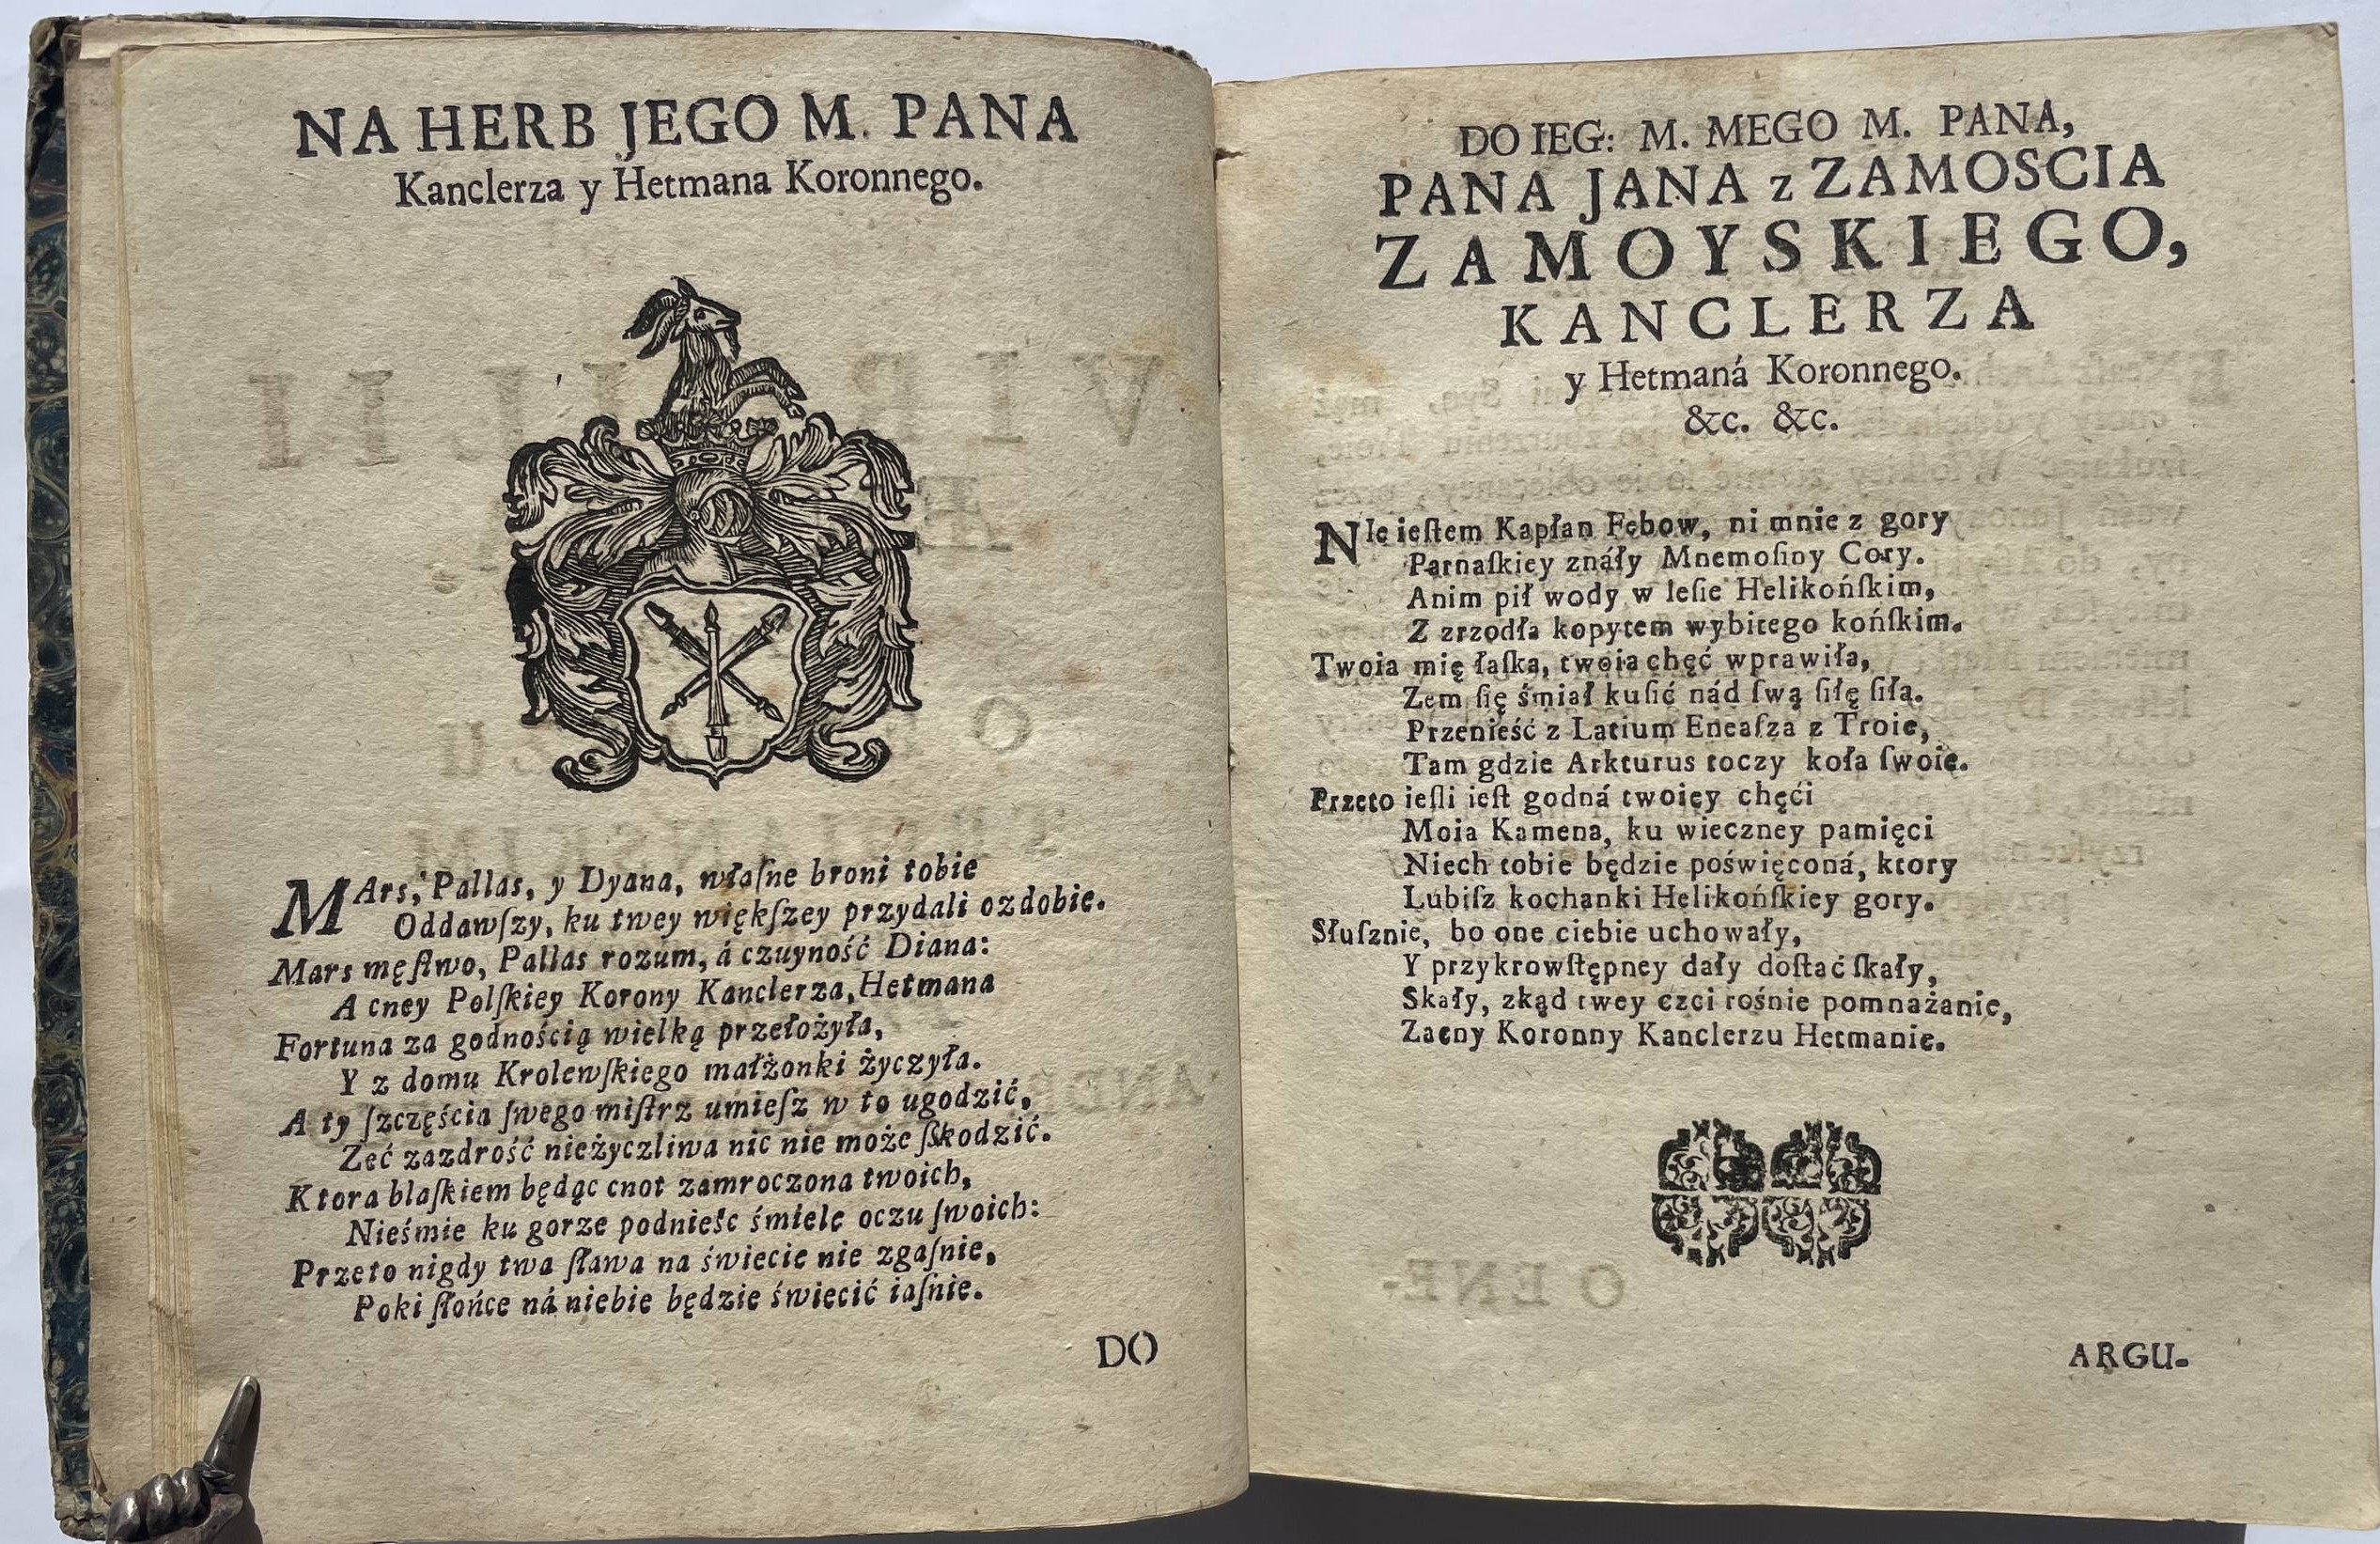 NA HERB JEGO M. PANA
Kanclerza y Hetmana Koronnego.
MArs, Pallas, y Dyana, właſne broni tobie
Oddawſzy, ku twey większey przydali ozdobie.
Mars męſtwo, Pallas rozum, á czuyność Diana:
A cney Polſkiey Korony Kanclerza, Hetmana
Fortuna za godnością wielką przełożyła,
Y z domu Krolewſkiego małżonki życzyła.
A ty ſzczęścia ſwego miſtrz umieſz w to ugodzić,
Zeć zazdrość nieżyczliwa nic nie może ſzkodzić.
Ktora blaſkiem będąc cnot zamroczona twoich,
Nieśmie ku gorze podnieśc śmiele oczu ſwoich:
Przeto nigdy twa ſława na świecie nie zgaſnie,
Poki ſłońce ná niebie będzie świecić iaſnie.
DO
DO IEG: M. MEGO M. PANA,
PANA JANA z ZAMOSCIA
ZAMOYSKIEGO,
KANCLERZA
y Hetmaná Koronnego.
&c. &c.
NIe ieſtem Kapłan Febow, ni mnie z gory
Parnaſkiey znáły Mnemoſiny Cory.
Anim pił wody w leſie Helikońſkim,
Z zrzodła kopytem wybitego końſkim.
Twoia mię łaſka, twoia chęć wprawiła,
Zem ſię śmiał kuſić nád ſwą ſiłę ſiłą.
Przenieść z Latium Eneaſza z Troie,
Tam gdzie Arkturus toczy koła ſwoie.
Przeto ieſli ieſt godná twoiey chęći
Moia Kamena, ku wieczney pamięci
Niech tobie będzie poświęconá, ktory
Lubiſz kochanki Helikońſkiey gory.
Słuſznie, bo one ciebie uchowały,
Y przykrowſtępney dały doſtać ſkały,
Skały, zkąd twey czci rośnie pomnażanie,
Zacny Koronny Kanclerzu Hetmanie.
ARGU-